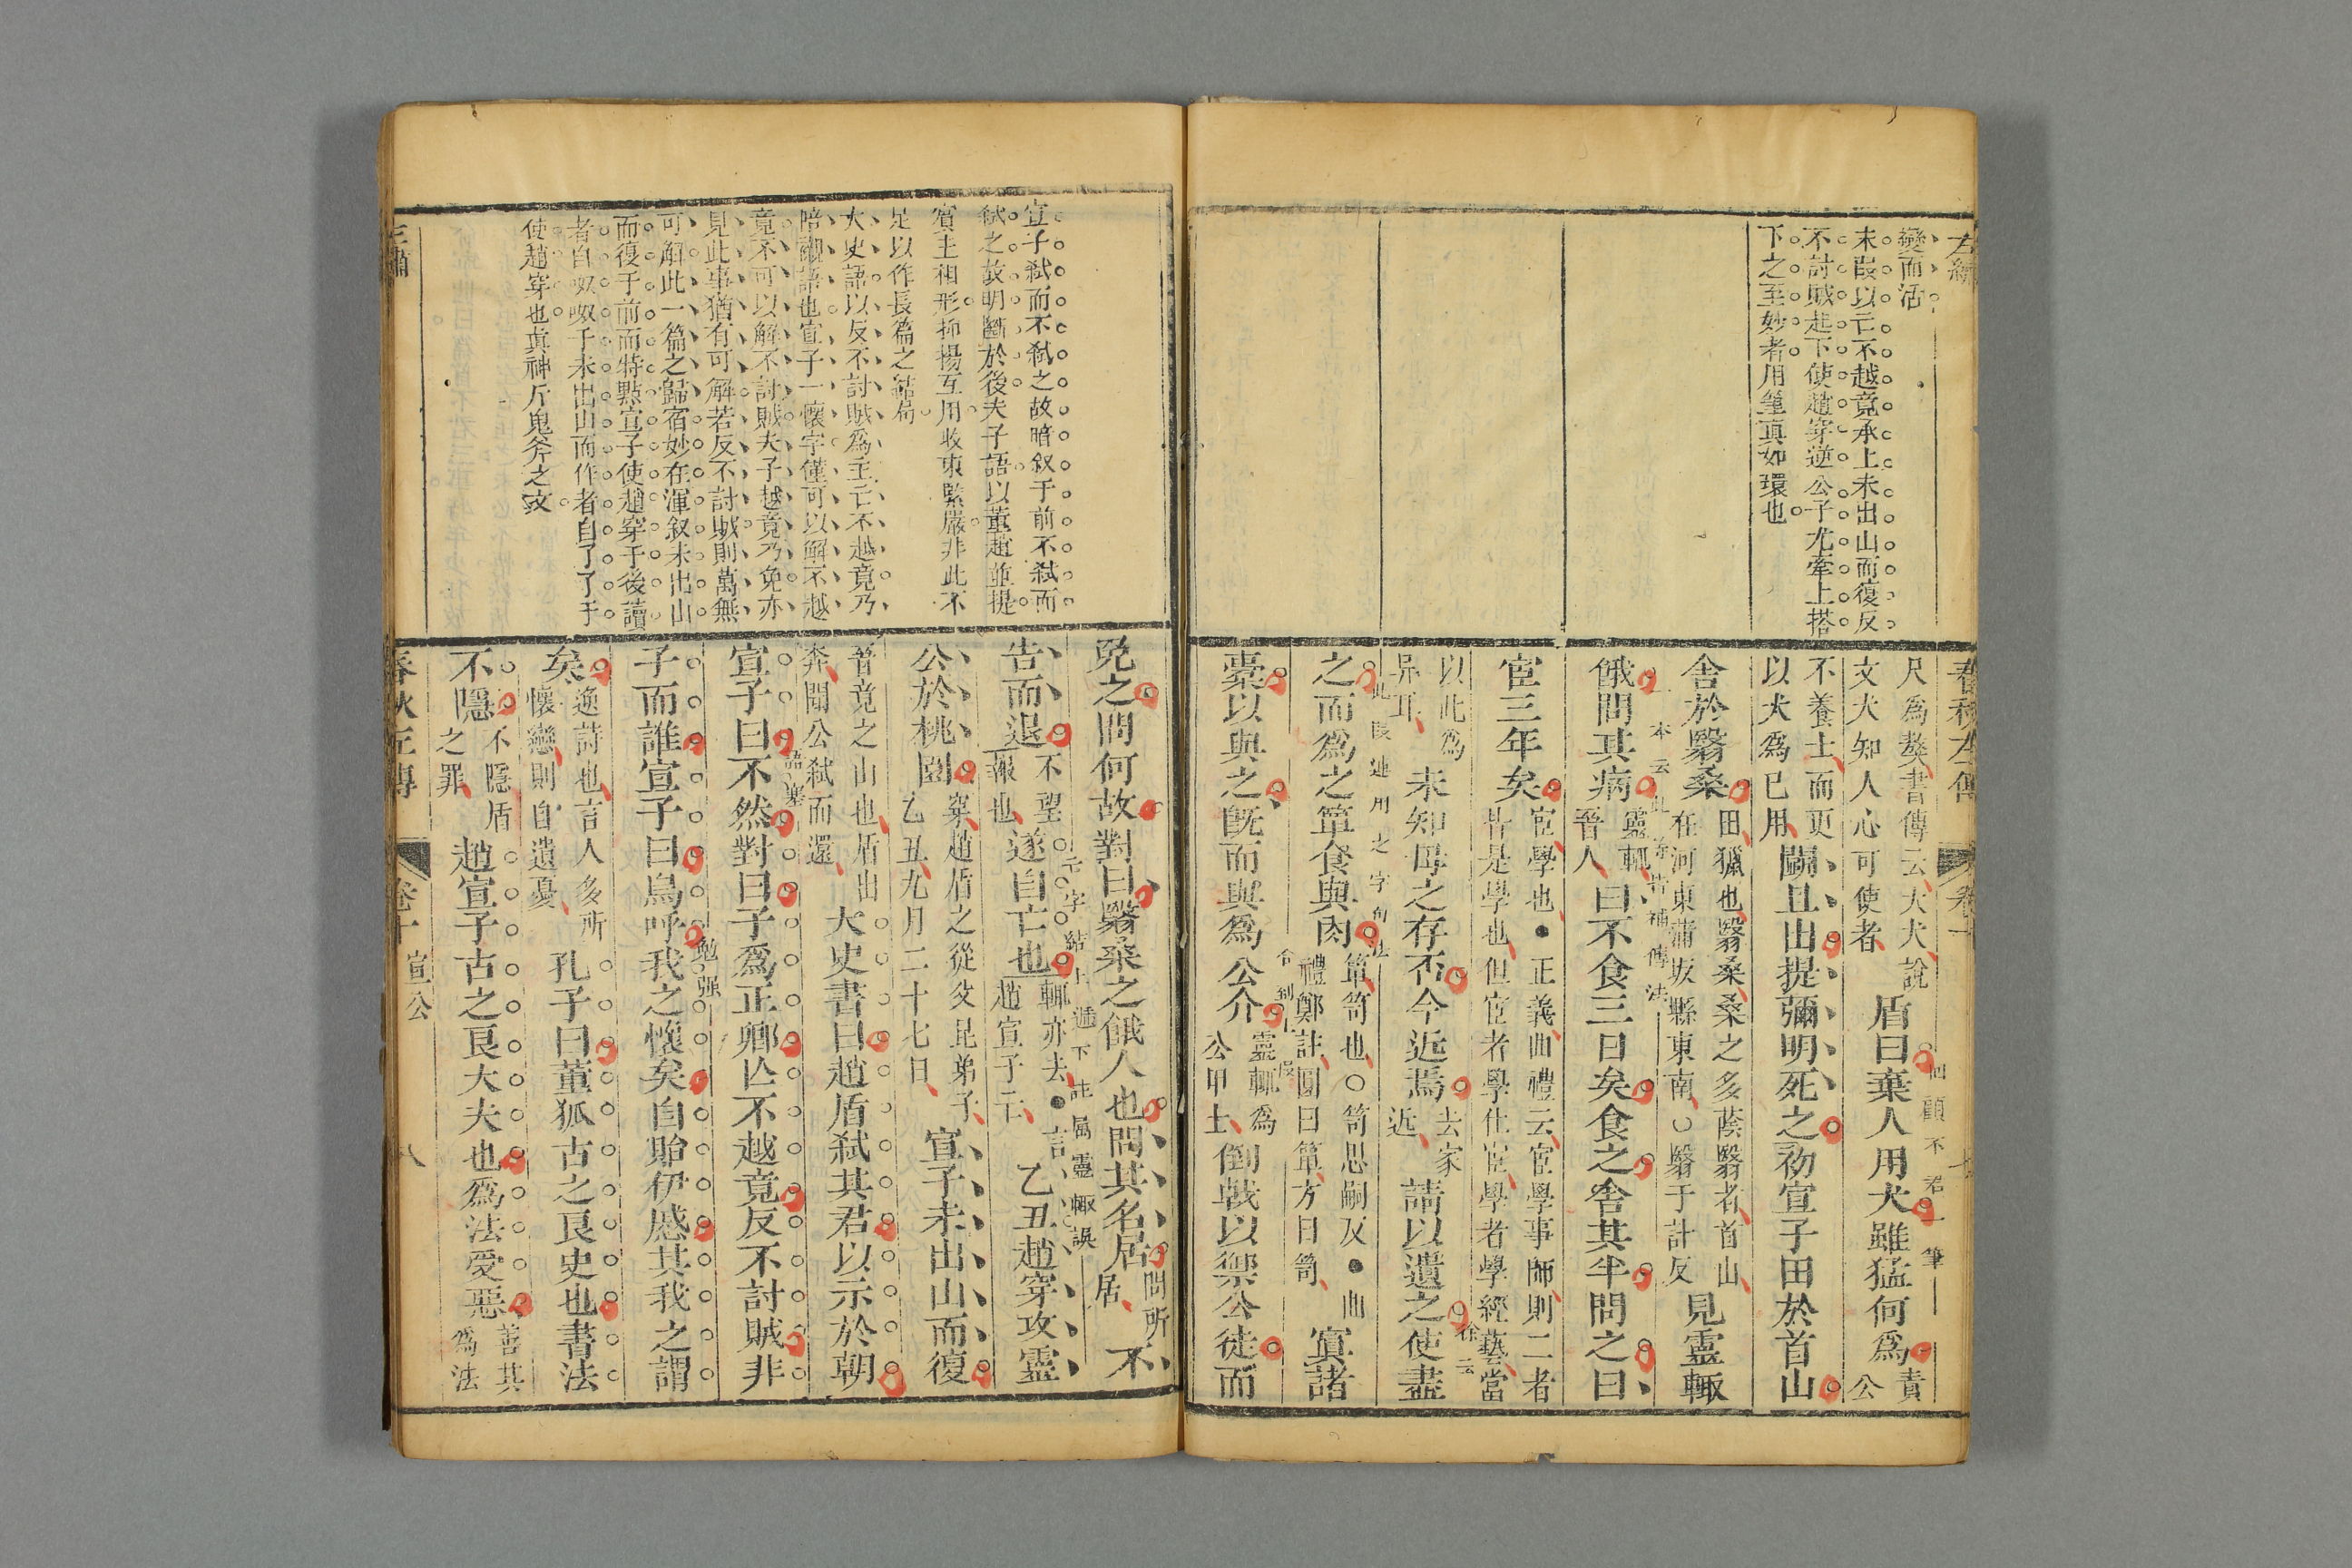 左繡
變而活
末段以亡不越竟承上未出山而復反
不討賊起下使趙穿逆公子尤牽上搭
下之至妙者用筆真如環也
春秋左傳
卷十
尺爲獒書傳云大犬說
文犬知人心可使者
盾曰棄人用犬雖猛何爲
責公
回顧不君一筆
不養士而更
以犬爲己用
鬭且出提彌明死之初宣子田於首山
舍於翳桑
田獵也翳桑桑之多蔭翳者首山
在河東蒲坂縣東南○翳于計反
見靈輒
餓問其病
靈輒
晉人
曰不食三日矣食之舍其半問之曰
宦三年矣
宦學也●正義曲禮云宦學事師則二者
皆是學也但宦者學仕宦學者學經藝當
以此爲
異耳
未知母之存否今近焉
去家
近
請以遺之使盡
此段連用之字句法
之而爲之簞食與肉
簞笥也○笥思嗣反●曲
禮鄭註圓曰簞方曰笥
寘諸
橐以與之旣而與爲公介
靈輒爲
公甲士
倒戟以禦公徒而
免之問何故對曰翳桑之餓人也問其名居
問所
居
不
告而退
不望
報也
遂自亡也
輒亦去●言
趙宣子亡
乙丑趙穿攻靈
公於桃園
穿趙盾之從父昆弟子
乙丑九月二十七日
宣子未出山而復
晉竟之山也盾出
奔聞公弑而還
大史書曰趙盾弑其君以示於朝
宣子曰不然對曰子爲正卿亡不越竟反不討賊非
語塞
子而誰宣子曰烏呼我之懷矣自貽伊慼其我之謂
勉强
矣
逸詩也言人多所
懷戀則自遺憂
孔子曰董狐古之良史也書法
不隱
不隱盾
之罪
趙宣子古之良大夫也爲法受惡
善其
爲法
宣子弑而不弑之故暗叙于前不弑而
弑之故明斷於後夫子語以董趙並提
賓主相形抑揚互用收束緊嚴非此不
足以作長篇之結局
大史語以反不討賊爲主亡不越竟乃
陪襯語也宣子一懷字僅可以解不越
竟不可以解不討賊夫子越竟乃免亦
見此事猶有可解若反不討賊則萬無
可解此一篇之歸宿妙在渾叙未出山
而復于前而特點宣子使趙穿于後讀
者自呶呶子未出山而作者自了了于
使趙穿也真神斤鬼斧之文
春秋左傳
卷十
宣公
八